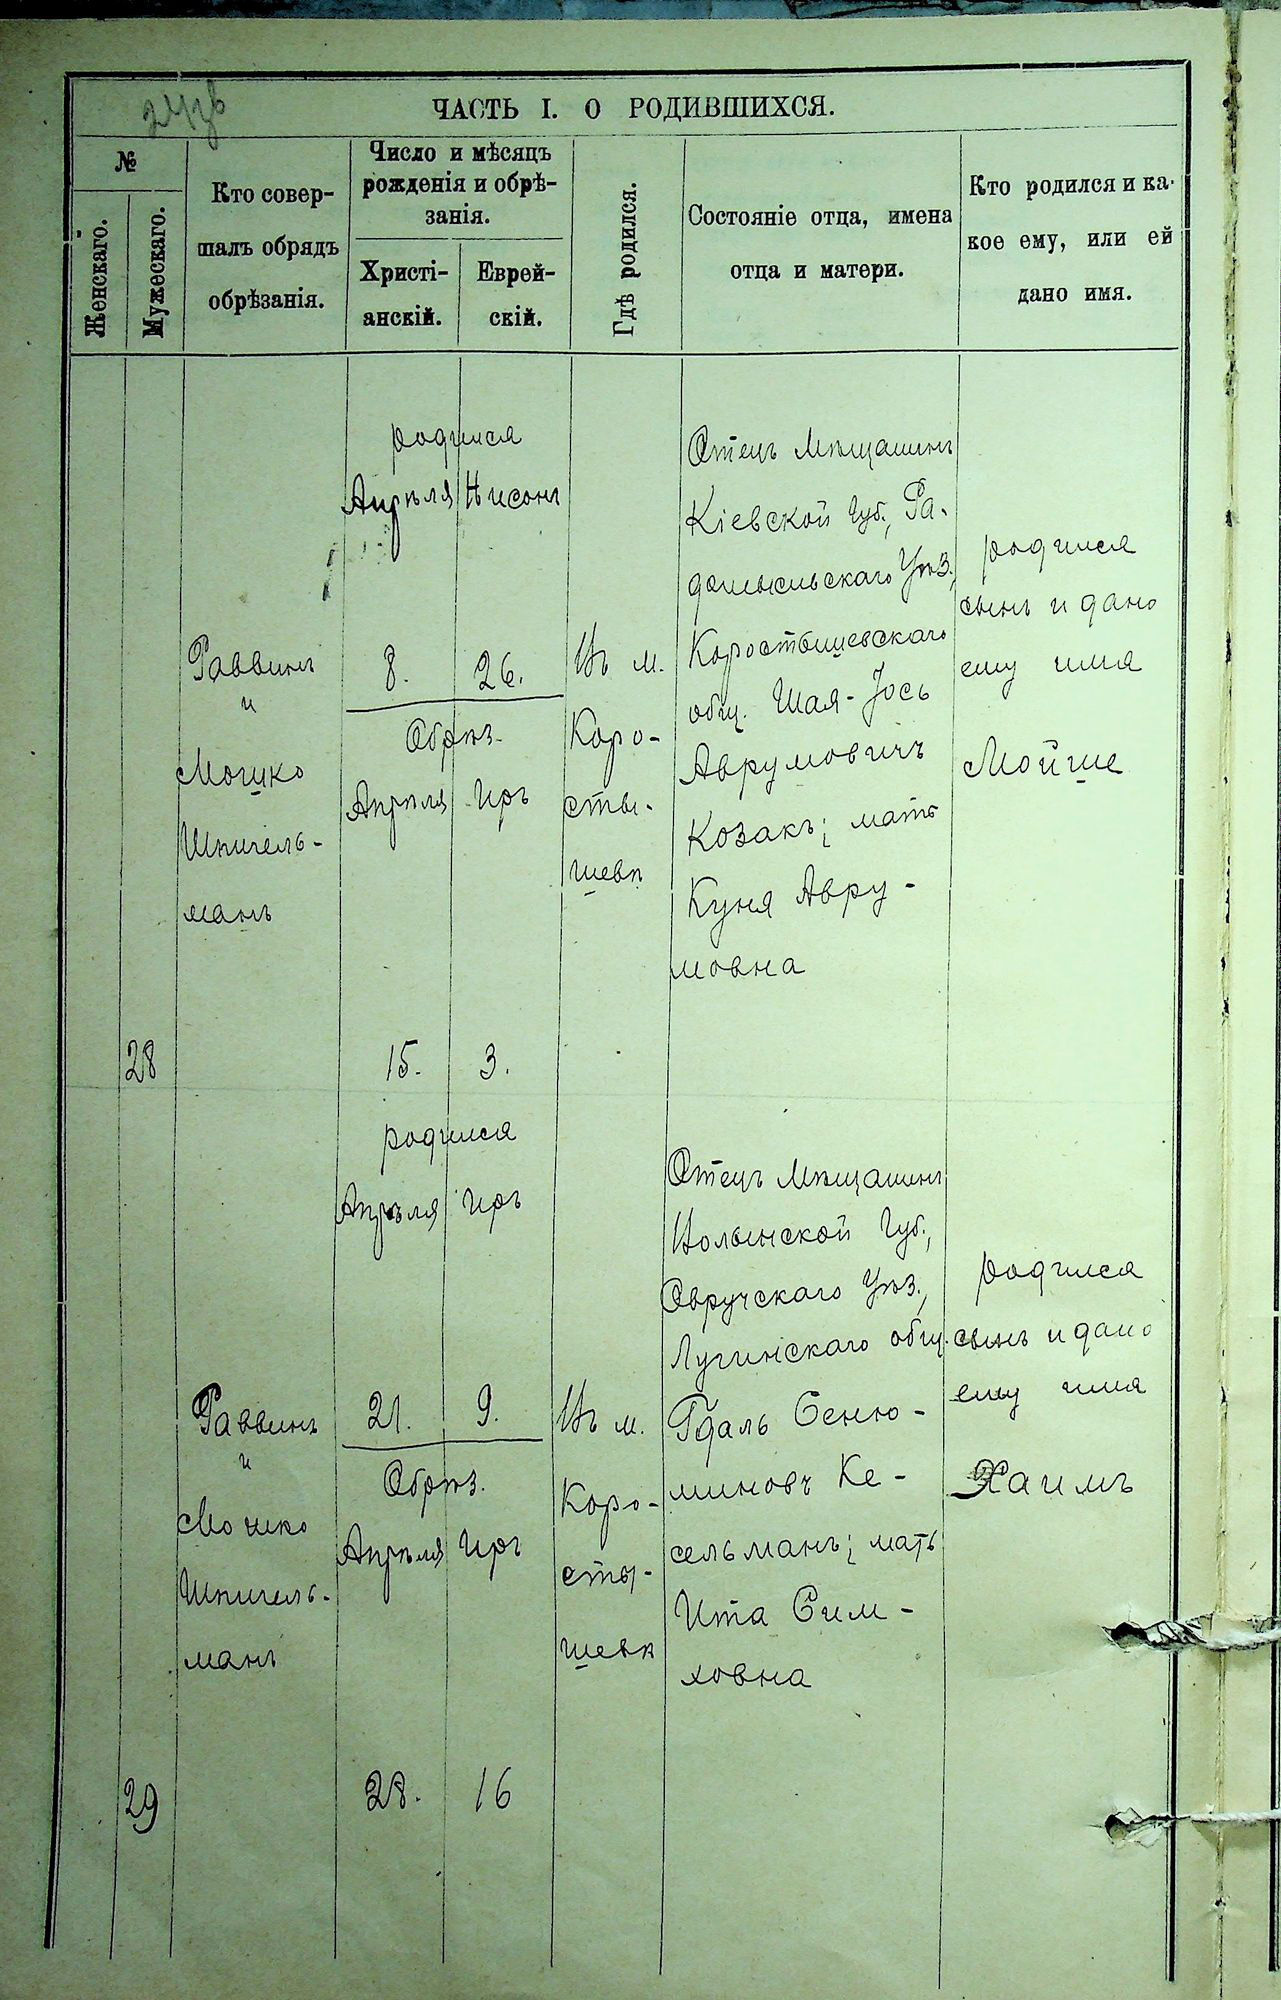 ЧАСТЬ I. О РОДИВШИХСЯ.
№
Женскаго.
Мужескаго.
Кто совер-
шалъ обрядъ
обрѣзанія.
Число и мѣсяцъ
рожденія и обрѣ-
занія.
Христі-
анскій.
Еврей-
скій.
Гдѣ родился.
Состояніе отца, имена
отца и матери.
Кто родился и ка-
кое ему, или ей
дано имя.
28
Раввинъ
и
Мошко
Шпигель-
манъ
родился
Апрѣля Нисонъ
8. 26.
Обрѣз.
Апрѣля Иръ
15. 3.
Въ м.
Коро-
сты-
шевѣ
Отецъ Мѣщанинъ
Кіевской Губ., Ра-
домысльскаго Уѣз.
Коростышевскаго
общ. Шая-Іось
Аврумовичъ
Козакъ; мать
Куня Авру-
мовна
родился
сынъ и дано
ему имя
Мойше
29
Раввинъ
и
Мошко
Шпигель-
манъ
родился
Апрѣля Иръ
21. 9.
Обрѣз.
Апрѣля Иръ
28. 16
Въ м.
Коро-
сты-
шевѣ
Отецъ Мѣщанинъ
Волынской Губ.,
Овручскаго Уѣз.,
Лугинскаго общ.
Гдаль Сеню-
миновъ Ке-
сельманъ; мать
Ита Сим-
ховна
родился
сынъ и дано
ему имя
Хаимъ